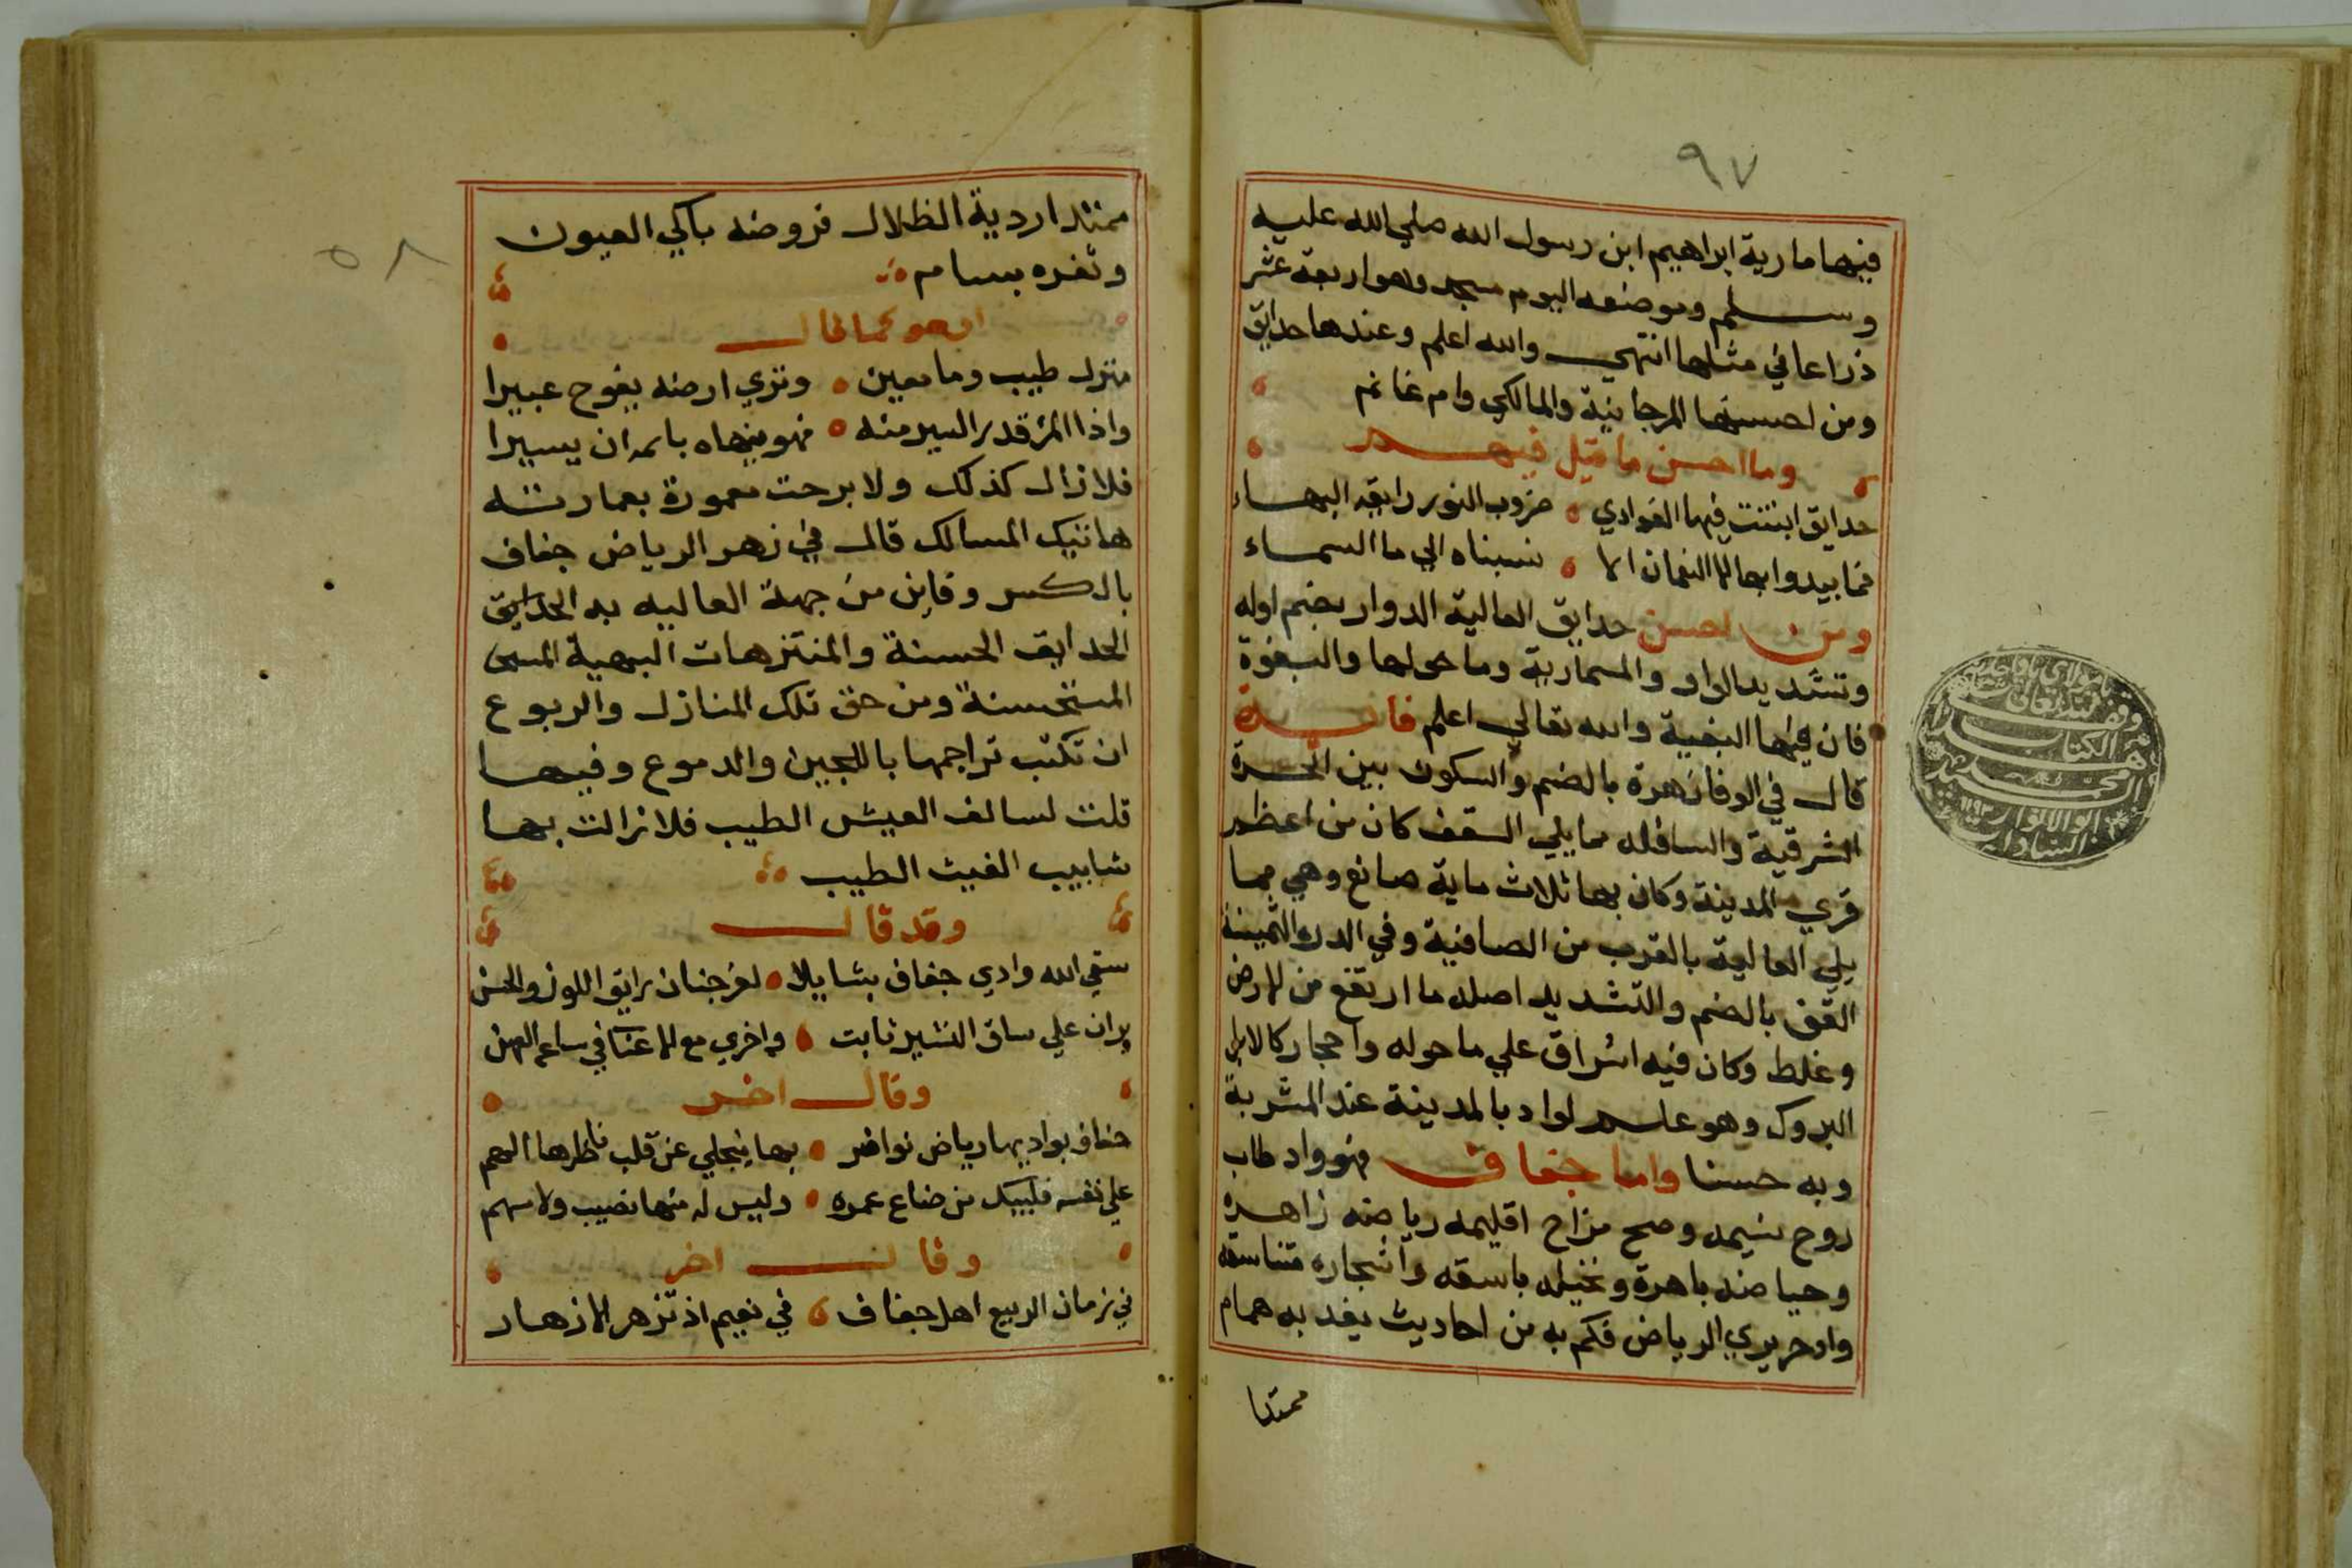 ٩٧
فيها مارية ابراهيم ابن رسول الله صلي الله عليه
وسلم وموضعه اليوم مسجد وهو اربعة عشر
ذراعا في مثلها انتهي والله اعلم وعندها حدايق
ومن احسنها المرجانية والمالكي وام غانم
وما احسن ما قيل فيهم
حدايق ابنتت فيها الغوادي ضروب النور رايقه البهاء
فما يبدوا بها النعمان الا نسبناه الي ما السماء
ومن احسن حدايق العالية الدوار بضم اوله
وتشديد الواو والمسمارية وما حولها والسبغوة
فان فيها البغية والله تعالي اعلم فايدة
قال في الوفا زهرة بالضم والسكون بين الحرة
الشرقية والسافله مما يلي السقف كان من اعظم
قري المدينة وكان بها ثلاث ماية صانع وهي مما
يلي العالية بالقرب من الصافية وفي الدرر الثمينة
القف بالضم والتشديد اصله ما ارتفع من الارض
وغلط وكان فيه اشراق علي ما حوله واحجار كالابل
البروك وهو علم لواد بالمدينة عند المشربة
وبه حسنا واما جفاف فهو واد طاب
روح نسيمه وصح مزاح اقليمه رياضه زاهرة
وحياضه باهرة ونخيله باسقه واشجاره متناسقه
واد حريري الرياض فكم به من احاديث يفد به همام
ممتدا
٥٨
ممتد اردية الظلال فروضه باكي العيون
وثغره بسام
او هو كما قال
منزل طيب وما معين وتري ارضه يفوح عبيرا
واذا المرؤ قدر السير منه فهو ينهاه باسمه ان يسيرا
فلا زال كذلك ولا برحت معمورة بعمارته
هاتيك المسالك قال في زهر الرياض جفاف
بالكسر وفاين من جهة العاليه به الحدايق
الحدايق الحسنة والمنتزهات البهية المسمى
المستحسنة ومن حق تلك المنازل والربوع
ان تكتب تراجمها باللجين والدموع وفيها
قلت لسالف العيش الطيب فلا زالت بها
شابيب الغيث الطيب
وقد قال
سقي الله وادي جفاف بشايلا لغر جنان رايق اللوز والحسن
يران علي ساق النشير ثابت واخري مع الاغنا في ساعه الوهن
وقال اخر
جفاف بواديها رياض نواضر بها ينجلي عن قلب ناظرها الهم
علي نفسه فليبك من ضاع عمره وليس له منها نصيب ولا سهم
وقال اخر
في زمان الربيع اهل جفاف في نعيم اذ تزهر الازهار